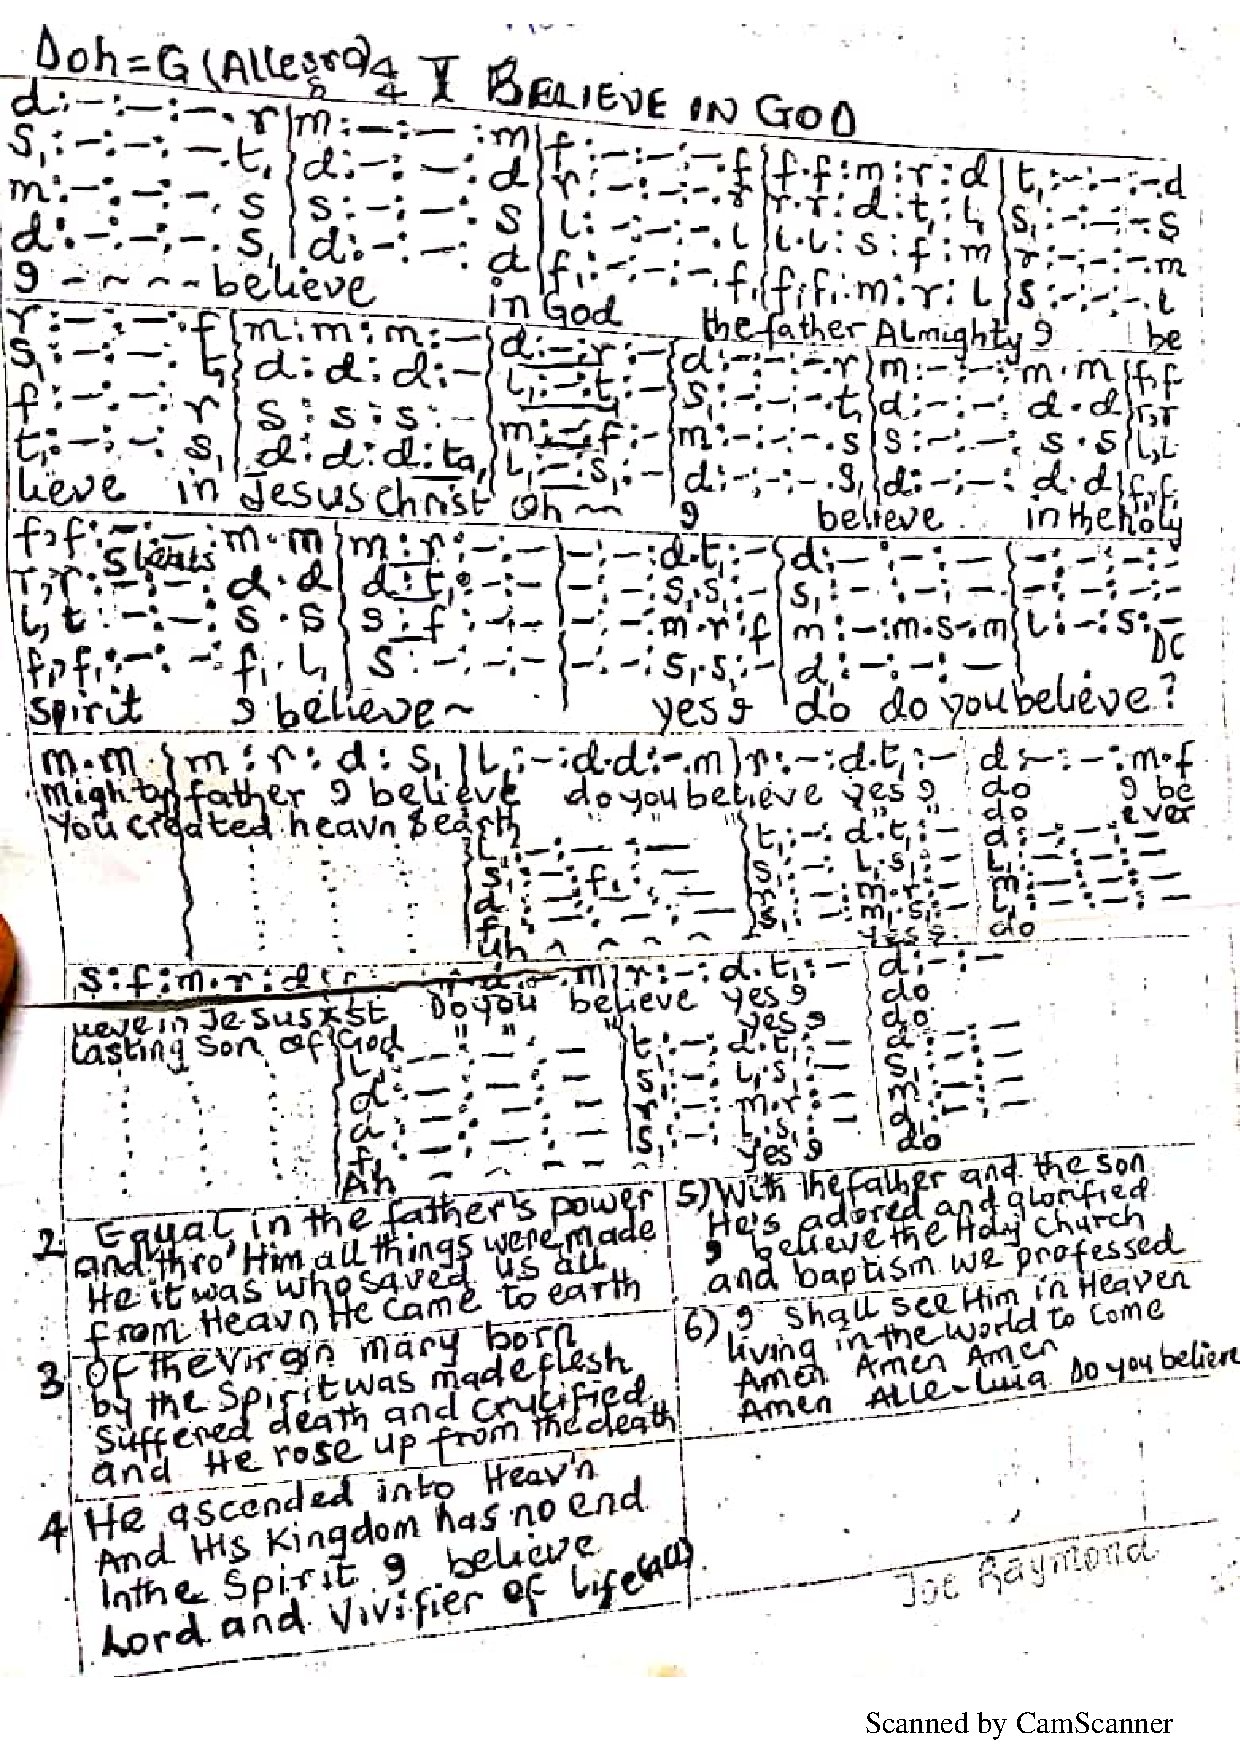 Doh = G (Allegro) 4/4 I BELIEVE IN GOD
d:-:-:-.r|m:-:-:m|f:-:-:-.f|f.f:m:r:d|t,:-:-:-d
s,:-:-:-.t,|d:-:-:d|r:-:-:-.r|r.r:d:t,:l,|s,:-:-:-s
m:-:-:-.s|s:-:-:s|l:-:-:-.l|l.l:s:f:m|r:-:-:-.m
d:-:-:-.s,|d:-:-:d|f,:-:-:-.f,|f,f,:m:r:l|s:-:-:-.l
I - ~ ~ ~ believe in God the father Almighty I be
r:-:-:f|m:m:m:-|d:-:r:-|d:-:-:-r|m:-:-:m.m|f,f
s,:-:-:t,|d:d:d:-|l,:-:t,:-|s,:-:-:-.t,|d:-:-:d.d|r,r
f:-:-:r|s:s:s:-|m:-:f:-|m:-:-:-.s|s:-:-:s.s|l,l
t,:-:-:s,|d:d:d:ta,|l,:-:s,:-|d:-:-:-.s,|d:-:-:d.d|f,f,
lieve in Jesus christ Oh ~~ I believe in the holy
f,f:-:-:m.m|m:r:-:-|-:-:d.t,:-|d:-:-:-|-:-:-:-
5 beats
r,r:-:-:d.d|d:t,:-:-|-:-:s,.s,:-|s,:-:-:-|-:-:-:-
l,t:-:-:s.s|s:f:-:-|-:-:m.r:f|m:-:m.s-.m|l:-:s:-
DC
f,f,:-:-:f,.l,|s:-:-:-|-:-:s,.s,:-|d,:-:-:-
spirit I believe ~ yes I do do you believe?
m.m|m:r:d:s,|l,:-:d.d:-.m|r:-:d.t,:-|d:-:-:m.f
Mighty father I believe do you believe yes I do I be
You created heavn & earth " " " " " do ever
t,:-:d.t,:-|d:-:-:-
yes I do
s:f:m.r:d|r: d.-m|r:-:d.t,:-|d:-:-
lieve in Jesus xst Do you believe yes I do
lasting Son of God " " " yes I do
Ah - - - - - yes I do
2 Equal in the father's power
and thro' Him all things were made
He it was who saved us all
from Heavn He came to earth
3 Of the virgin mary born
by the Spirit was made flesh
Suffered death and crucified
and He rose up from the death
4 He ascended into Heav'n
And His Kingdom has no end
In the Spirit I believe
Lord and Vivifier of life (all)
5) With the father and the son
He's adored and glorified
I believe the Holy Church
and baptism we professed
6) I shall see Him in Heaven
living in the world to come
Amen Amen Amen
Amen Alle-luia Do you believe
Joe Raymond
Scanned by CamScanner